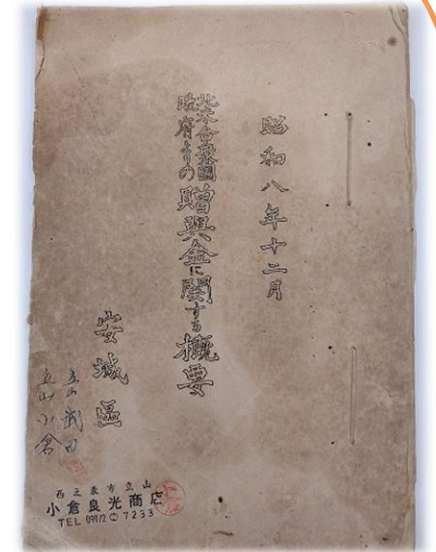 昭和八年十二月
北米合衆國
政府よりの
贈與金に關する概要
安城區
立山 武田
立山 小倉
西之表市立山
小倉良光商店
TEL 09972②7233